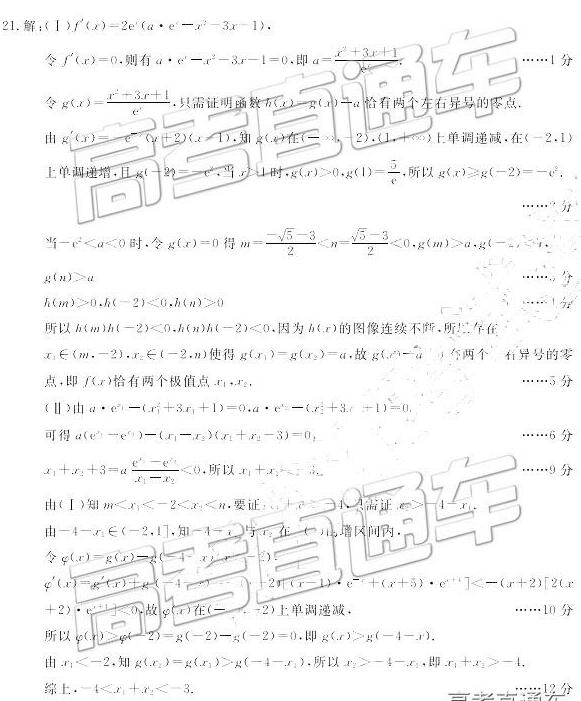 21.解:(Ⅰ)f′(x)=2eˣ(a·eˣ-x²-3x-1),
令f′(x)=0,则有a·eˣ-x²-3x-1=0,即a=(x²+3x+1)/eˣ, ……1分
令g(x)=(x²+3x+1)/eˣ,只需证明函数h(x)=g(x)-a恰有两个左右异号的零点.
由g′(x)=-e⁻ˣ(x+2)(x-1),知g(x)在(-∞,-2),(1,+∞)上单调递减,在(-2,1)
上单调递增,且g(-2)=-e²,当x>1时,g(x)>0,g(1)=5/e,所以g(x)≥g(-2)=-e².
……分
当-e²<a<0时,令g(x)=0得m=(-√5-3)/2<n=(√5-3)/2<0,g(m)>a,g(
g(n)>a ……分
h(m)>0,h(-2)<0,h(n)>0 ……分
所以h(m)h(-2)<0,h(n)h(-2)<0,因为h(x)的图像连续不断,所
x₁∈(m,-2),x₂∈(-2,n)使得g(x₁)=g(x₂)=a,故 两个 右异号的零
点,即f(x)恰有两个极值点x₁,x₂. ……5分
(Ⅱ)由a·eˣ¹-(x₁²+3x₁+1)=0,a·eˣ²-(x₂²+3x₂+1)=0,
可得a(eˣ¹-eˣ²)-(x₁-x₂)(x₁+x₂-3)=0, ……6分
x₁+x₂+3=a(eˣ¹-eˣ²)/(x₁-x₂)<0,所以x₁+x₂ 3. ……9分
由(Ⅰ)知m<x₁<-2<x₂<n,要证 4,只需证x₂>-4-x₁.
由-4-x₁∈(-2,1],知-4-x₁与x₂在 增区间内.
令φ(x)=g(x)-g(-4-x)
φ′(x)=g′(x)+g (x-1)·e +(x+5)·e ]<-(x+2)[2(x
+2)·e ]<0,故φ(x)在( -2)上单调递减, ……10分
所以φ(x)>φ(-2)=g(-2)-g(-2)=0,即g(x)>g(-4-x).
由x₁<-2,知g(x₂)=g(x₁)>g(-4-x₁),所以x₂>-4-x₁,即x₁+x₂>-4.
综上,-4<x₁+x₂<-3. ……12分
高考直通车
高考直通车
高考直通车